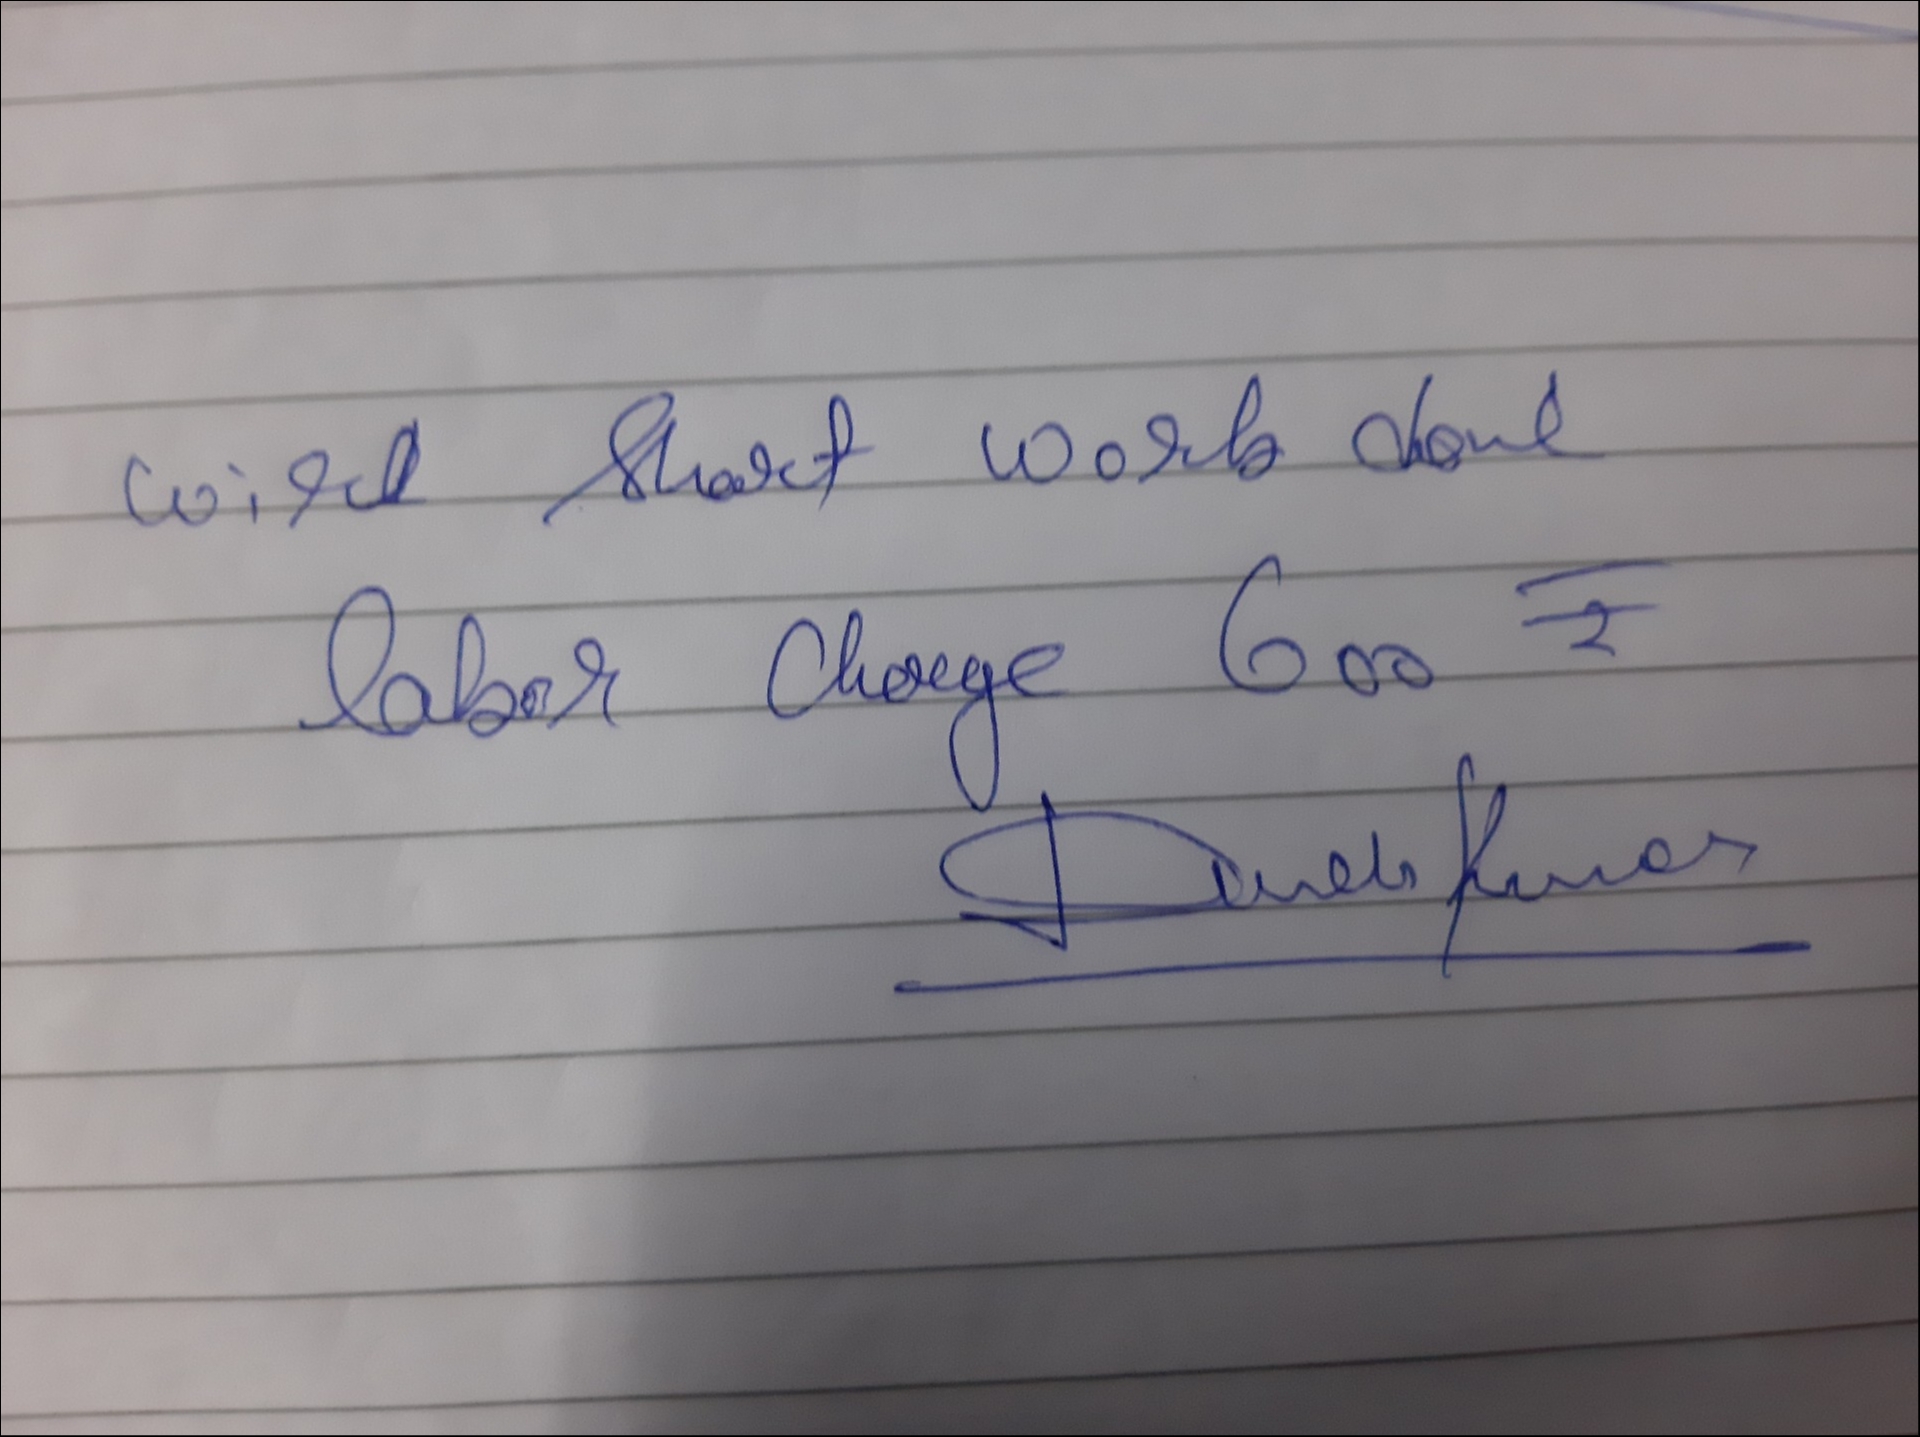 wire short work done
labor charge 600 ₹
Kumar